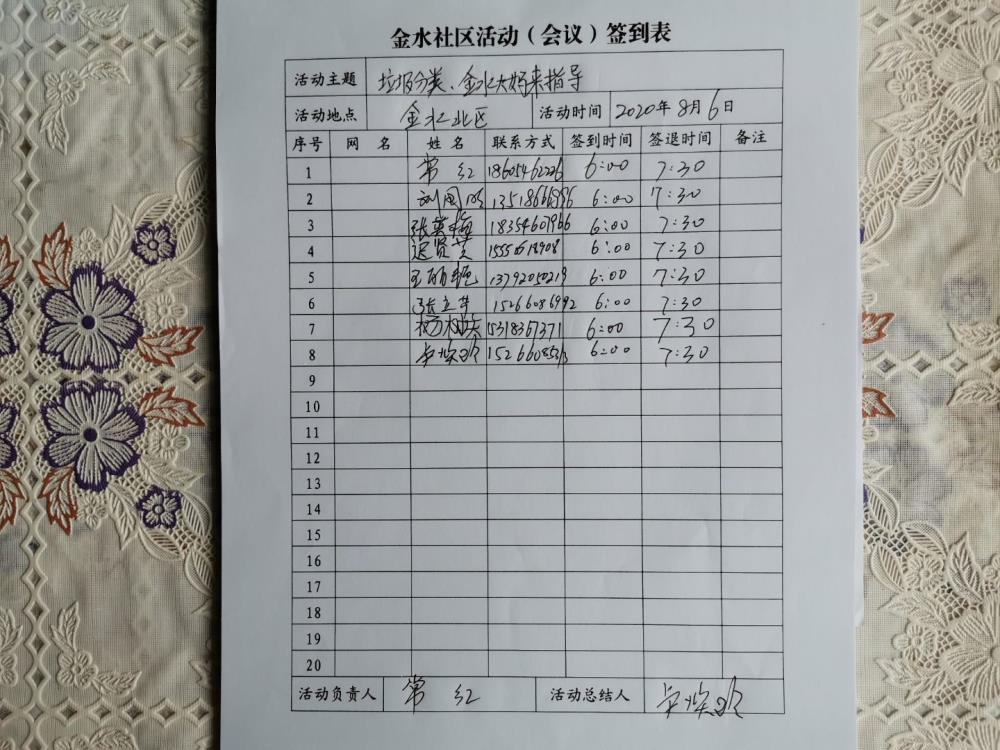 金水社区活动（会议）签到表
活动主题 垃圾分类、金水大妈来指导
活动地点 金水北区 活动时间 2020年8月6日
序号 网名 姓名 联系方式 签到时间 签退时间 备注
1 常红 18605462226 6:00 7:30
2 6:00 7:30
3 张英梅 18354607966 6:00 7:30
4 6:00 7:30
5 13792050219 6:00 7:30
6 张立华 15266086992 6:00 7:30
7 15318367371 6:00 7:30
8 6:00 7:30
9
10
11
12
13
14
15
16
17
18
19
20
活动负责人 常红 活动总结人